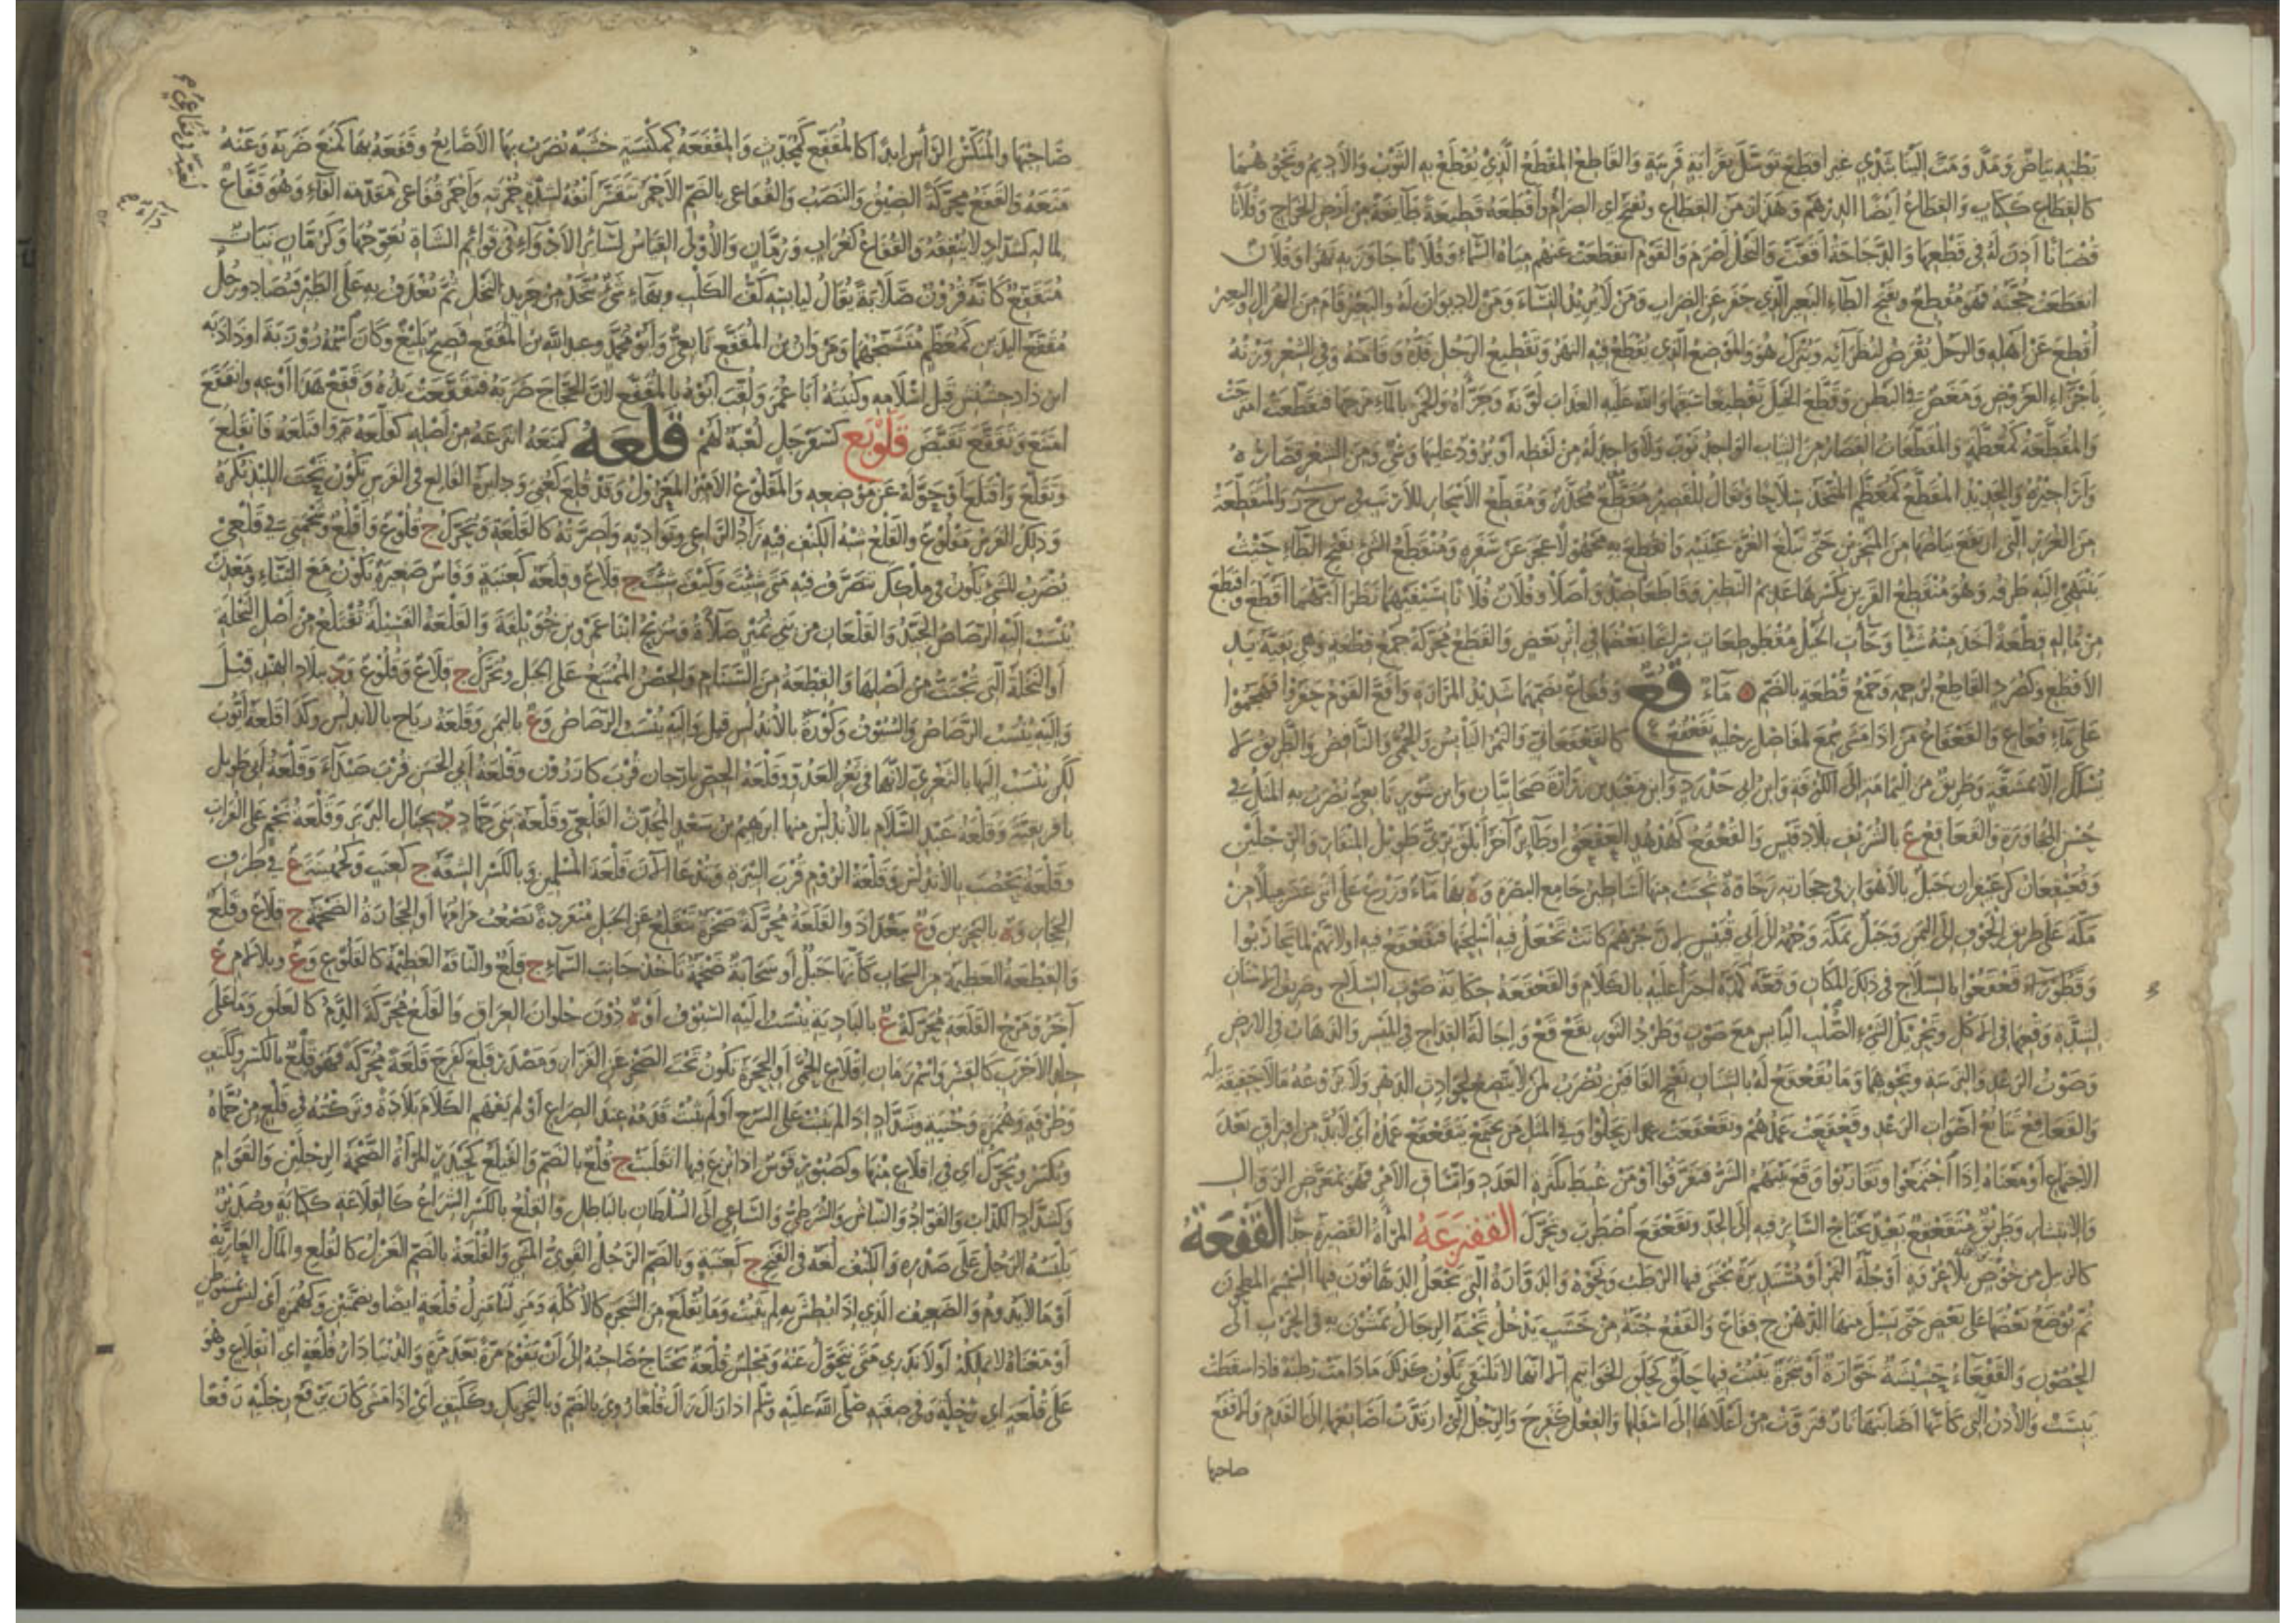 بطنه بياض ومد ومت إلينا بثدي غير أقطع توسل بقرابة قريبة والقاطع المقطع الذي يقطع به الثوب والأديم ونحوهما
كالقطاع ككتاب والقطاع أيضا الدرهم وهذا زمن القطاع ويفتح أي الصرام وأقطعه قطيعة طائفة من أرض الخراج وفلانا
قضبانا أذن له في قطعها والدجاجة أقفت والنخل أصرم والقوم انقطعت عنهم مياه السماء وفلانا جاوز به نهرا وفلان
انقطعت حجته فهو مقطع وبفتح الطاء البعير الذي جفر عن الضراب ومن لا يريد النساء ومن لا ديوان له والبعير قام من الهزال والغريب
أقطع عن أهله والرجل يفرض لنظرائه ويترك هو والموضع الذي يقطع فيه النهر وتقطيع الرجل قده وقامته وفي الشعر وزنه
بأجزاء العروض ومغص في البطن وقطع الخيل تقطيعا سبقها والله عليه العذاب لونه وجزأه والخمر بالماء مزجها فتقطعت امتزجت
والمقطعة كمعظمة والمقطعات القصار من الثياب الواحد ثوب ولا واحد له من لفظه أو برود عليها وشي ومن الشعر قصاره
وأراجيزه والحديد المقطع كمعظم المتخذ سلاحا ويقال للقصير مقطع مجذر ومقطع الأسحار للأرنب في س ح ر والمتقطعة
من الغرر التي ارتفع بياضها من المنخرين حتى تبلغ الغرة عينيه وانقطع به مجهولا عجز عن سفره ومنقطع الشيء بفتح الطاء حيث
ينتهي إليه طرفه وهو منقطع القرين بكسرها عديم النظير وقاطعا ضد واصلا وفلان فلانا بسيفيهما نظرا أيهما أقطع واقتطع
من ماله قطعة أخذ منه شيئا وجاءت الخيل مقطوطعات سراعا بعضها في إثر بعض والقطع محركة جمع قطعة وهي بقية يد
الأقطع وكصرد القاطع لرحمه وجمع قطعة بالضم ه ماء قع وقعاع بضمهما شديد المرارة وأقع القوم حفروا فهجموا
على ماء قعاع والقعقاع من إذا مشى سمع لمفاصل رجليه تقعقع كالقعقعاني والتمر اليابس والحمى النافض والطريق لا
يسلك إلا بمشقة وطريق من اليمامة إلى الكوفة وابن أبي حدرد وابن معبد بن زرارة صحابيان وابن شور تابعي يضرب به المثل في
حسن المجاورة والقعاقع ع بالشريف ببلاد قيس والقعقع كهدهد العقعق أو طائر آخر أبلق بري طويل المنقار والرجلين
وقعيقعان كزعيفران جبل بالأهواز في حجارته رخاوة تنحت منها أساطين جامع البصرة وه بها ماء وزرع على اثني عشر ميلا من
مكة على طريق الحوف إلى اليمن وجبل بمكة وجهه إلى أبي قبيس لأن جرهم كانت تجعل فيه أسلحتها فتقعقع فيه أو لأنهم لما تحاربوا
وقطوراء قعقعوا بالسلاح في ذلك المكان وقعه كمده اجترأ عليه بالكلام والقعقعة حكاية صوت السلاح وصريف الأسنان
لشدة وقعها في الأكل وتحريك الشيء الصلب اليابس مع صوت وطرد الثور بقع قع وإجالة القداح في الميسر والذهاب في الأرض
وصوت الرعد والترسة ونحوهما وما يقعقع له بالشنان بفتح القافين يضرب لمن لا يتضع لحوادث الدهر ولا يروعه ما لا حقيقة له
والقعاقع تتابع أصوات الرعد وقعقعت عمدهم وتقعقعت عمدا ارتحلوا وفي المثل من يجتمع يتقعقع عمده أي لا بد من افتراق بعد
الاجتماع أو معناه إذا اجتمعوا وتقاربوا وقع بينهم الشر فتفرقوا أو من غبط بكثرة العدد واتساق الأمر فهو بمعرض الزوال
والانتشار وطريق متقعقع بعيد يحتاج السائر فيه إلى الجد وتقعقع اضطرب وتحرك القفزعة المرأة القصيرة جدا القفعة
كالزبيل من خوص بلا عروة أو جلة التمر أو مستديرة يجتنى فيها الرطب ونحوه والدوارة التي يجعل الدهانون فيها السمسم المطحون
ثم توضع بعضها على بعض حتى يسيل منها الدهن ج قفاع والقفع جنة من خشب يدخل تحته الرجال يمشون به في الحرب إلى
الحصون والقفعاء حشيشة خوارة أو شجرة ينبت فيها حلق كحلق الخواتيم إلا أنها لا تلتقي تكون كذلك ما دامت رطبة فإذا سقطت
يبست والأذن التي كأنها أصابتها نار فتزوت من أعلاها إلى أسفلها والفعل كفرح والرجل التي ارتدت أصابعها إلى القدم والأقفع
صاحبها
صاحبها والمنكس الرأس أبدا كالمقفع كمحدث والمقفعة كمكنسة خشبة تضرب بها الأصابع وقفعه بها كمنع ضربه وعنه
منعه والقفع محركة الضيق والنصب والقفاعي بالضم الأحمر يتقشر أنفه لشدة حمرته وأحمر قفاعي مقدمة الفاء وهو قفاع
لماله كشداد لا ينفقه والقفاع كغراب ورمان والأولى القياس لسائر الأدواء في قوائم الشاة تعوجها وكرمان نبات
متقفع كأنه قرون صلابة يقال ليابسه كف الكلب وبهاء شيء يتخذ من جريد النخل ثم يغدف به على الطير فيصاد ورجل
مقفع اليدين كمعظم متشنجهما ومروان بن المقفع تابعي وأبو محمد وعبد الله بن المقفع فصيح بليغ وكان اسمه روزبة أو داذبه
ابن داذجشنش قبل إسلامه وكنيته أبا عمر ولقب أبوه بالمقفع لأن الحجاج ضربه فتقفعت يده وقفع هذا أوعه وانقفع
امتنع وتقفع تقبض قلوبع كسفرجل لعبة لهم قلعه كمنعه انتزعه من أصله كقلعه فتقلع واقتلعه فانقلع
وتقلع واقتلع أو حوله عن موضعه والمقلوع الأمير المعزول وقد قلع كعني ودائرة القالع في الفرس تكون تحت اللبد تكره
وذلك الفرس مقلوع والقلع شبه الكنف فيه زاد الراعي وتواديه وأصرته كالقلعة ويحرك ج قلوع وأقلع وشحمتي في قلعي
يضرب للشيء يكون في ملكك تتصرف فيه متى شئت وكيف شئت ج قلاع وقلعة كعنبة وفأس صغيرة تكون مع البناء ومعدن
ينسب إليه الرصاص الجيد والقلعان من بني نمير صلاءة وشريح ابنا عمرو بن خويلفة والقلعة الفسيلة تقتلع من أصل النخلة
أو النخلة التي تجتث من أصلها والقطعة من السنام والحصن الممتنع على الجبل ويحرك ج قلاع وقلوع ود ببلاد الهند قيل
وإليه ينسب الرصاص والسيوف وكورة بالأندلس قيل وإليه ينسب الرصاص وع باليمن وقلعة رباح بالأندلس وكذا قلعة أيوب
لكن ينسب إليها بالثغري لأنها في ثغر العدو وقلعة الجص بأرجان قرب كازرون وقلعة أبي الحسن قرب صيداء وقلعة أبي طويل
بإفريقية وقلعة عبد السلام بالأندلس منها إبراهيم بن سعد المحدث القلعي وقلعة بني حماد د بجبال البربر وقلعة نجم على الفرات
وقلعة يحصب بالأندلس وقلعة الروم قرب البيرة وتدعى الآن قلعة المسلمين وبالكسر الشقة ج كعنب وكجهينة ع في طرف
الحجاز وه بالبحرين وع ببغداد والقلعة محركة صخرة تنقلع عن الجبل منفردة يصعب مرامها أو الحجارة الضخمة ج قلاع وقلع
والقطعة العظيمة من السحاب كأنها جبل أو سحابة ضخمة تأخذ جانب السماء ج قلع والناقة العظيمة كالقلوع وع وبلا لام ع
آخر ومرج القلعة محركة ع بالبادية ينسب إليه السيوف أو ه دون حلوان العراق والقلع محركة الدم كالعلق وما على
جلد الأجرب كالقشر واسم زمان إقلاع الحمى أو الحجرة تكون تحت الصخر عن الفزاري ومصدر قلع كفرح قلعة محركة فهو قلع بالكسر وككتف
وطرفة وهمزة وجبنة وشداد إذا لم يثبت على السرج أو لم يثبت قدمه عند الصراع أو لم يفهم الكلام بلادة وتركته في قلع من حماه
ويكسر ويحرك أي في إقلاع منها وكصبور قوس إذا نزع فيها انقلبت ج قلع بالضم والقيلع كحيدر المرأة الضخمة الرجلين والقوام
وكشداد الكذاب والقواد والنباش والشرطي والساعي إلى السلطان بالباطل والقلع بالكسر الشراع كالقلاعة ككتابة وصدير
يلبسه الرجل على صدره والكنف لغة في الفتح ج كعنبة وبالضم الرجل القوي المشي والقلعة بالضم العزل كالقلع والمال العارية
أو ما لا يدوم والضعيف الذي إذا بطش به لم يثبت وما يقلع من الشجر كالأكلة ومنزلنا منزل قلعة أيضا وبضمتين وكهمزة أي ليس بمستوطن
أو معناه لا نملكه أو لا ندري متى نتحول عنه ومجلس قلعة يحتاج صاحبه إلى أن يقوم مرة بعد مرة والدنيا دار قلعة أي انقلاع وهو
على قلعة أي رحلة وفي صفته صلى الله عليه وسلم إذا زال زال قلعا روي بالضم وبالتحريك وككتف أي إذا مشى كان يرفع رجليه رفعا